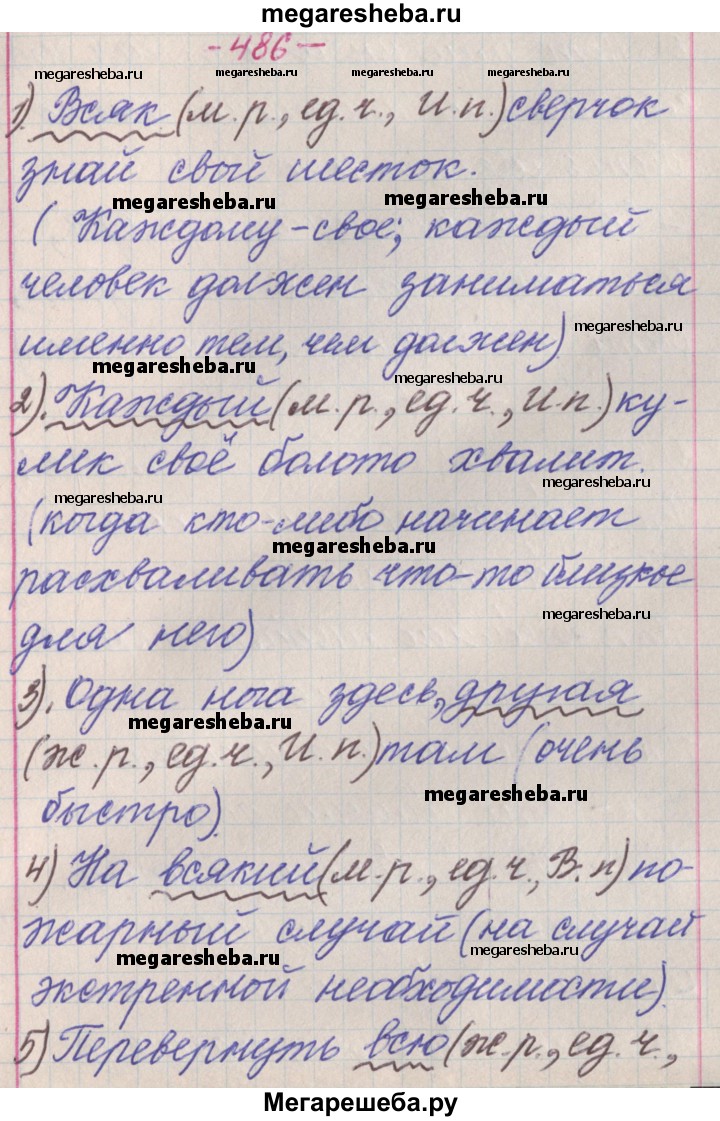 megaresheba.ru
-486-
megaresheba.ru megaresheba.ru megaresheba.ru megaresheba.ru
1). Всяк (м.р., ед.ч., И.п.) сверчок
знай свой шесток.
megaresheba.ru megaresheba.ru
( Каждому – свое; каждый
человек должен заниматься
именно тем, чем должен)
megaresheba.ru
megaresheba.ru
megaresheba.ru
2). Каждый (м.р., ед.ч., И.п.) ку-
лик своё болото хвалит.
megaresheba.ru
megaresheba.ru
(когда кто-либо начинает
megaresheba.ru
расхваливать что-то близкое
megaresheba.ru
для него)
3). Одна нога здесь, другая
megaresheba.ru
(ж.р., ед.ч., И.п.) там (очень
megaresheba.ru
быстро).
4) На всякий (м.р., ед.ч., В.п) по-
жарный случай (на случай
megaresheba.ru megaresheba.ru
экстренной необходимости).
5) Перевернуть всю (ж.р., ед.ч.,
Мегарешеба.ру